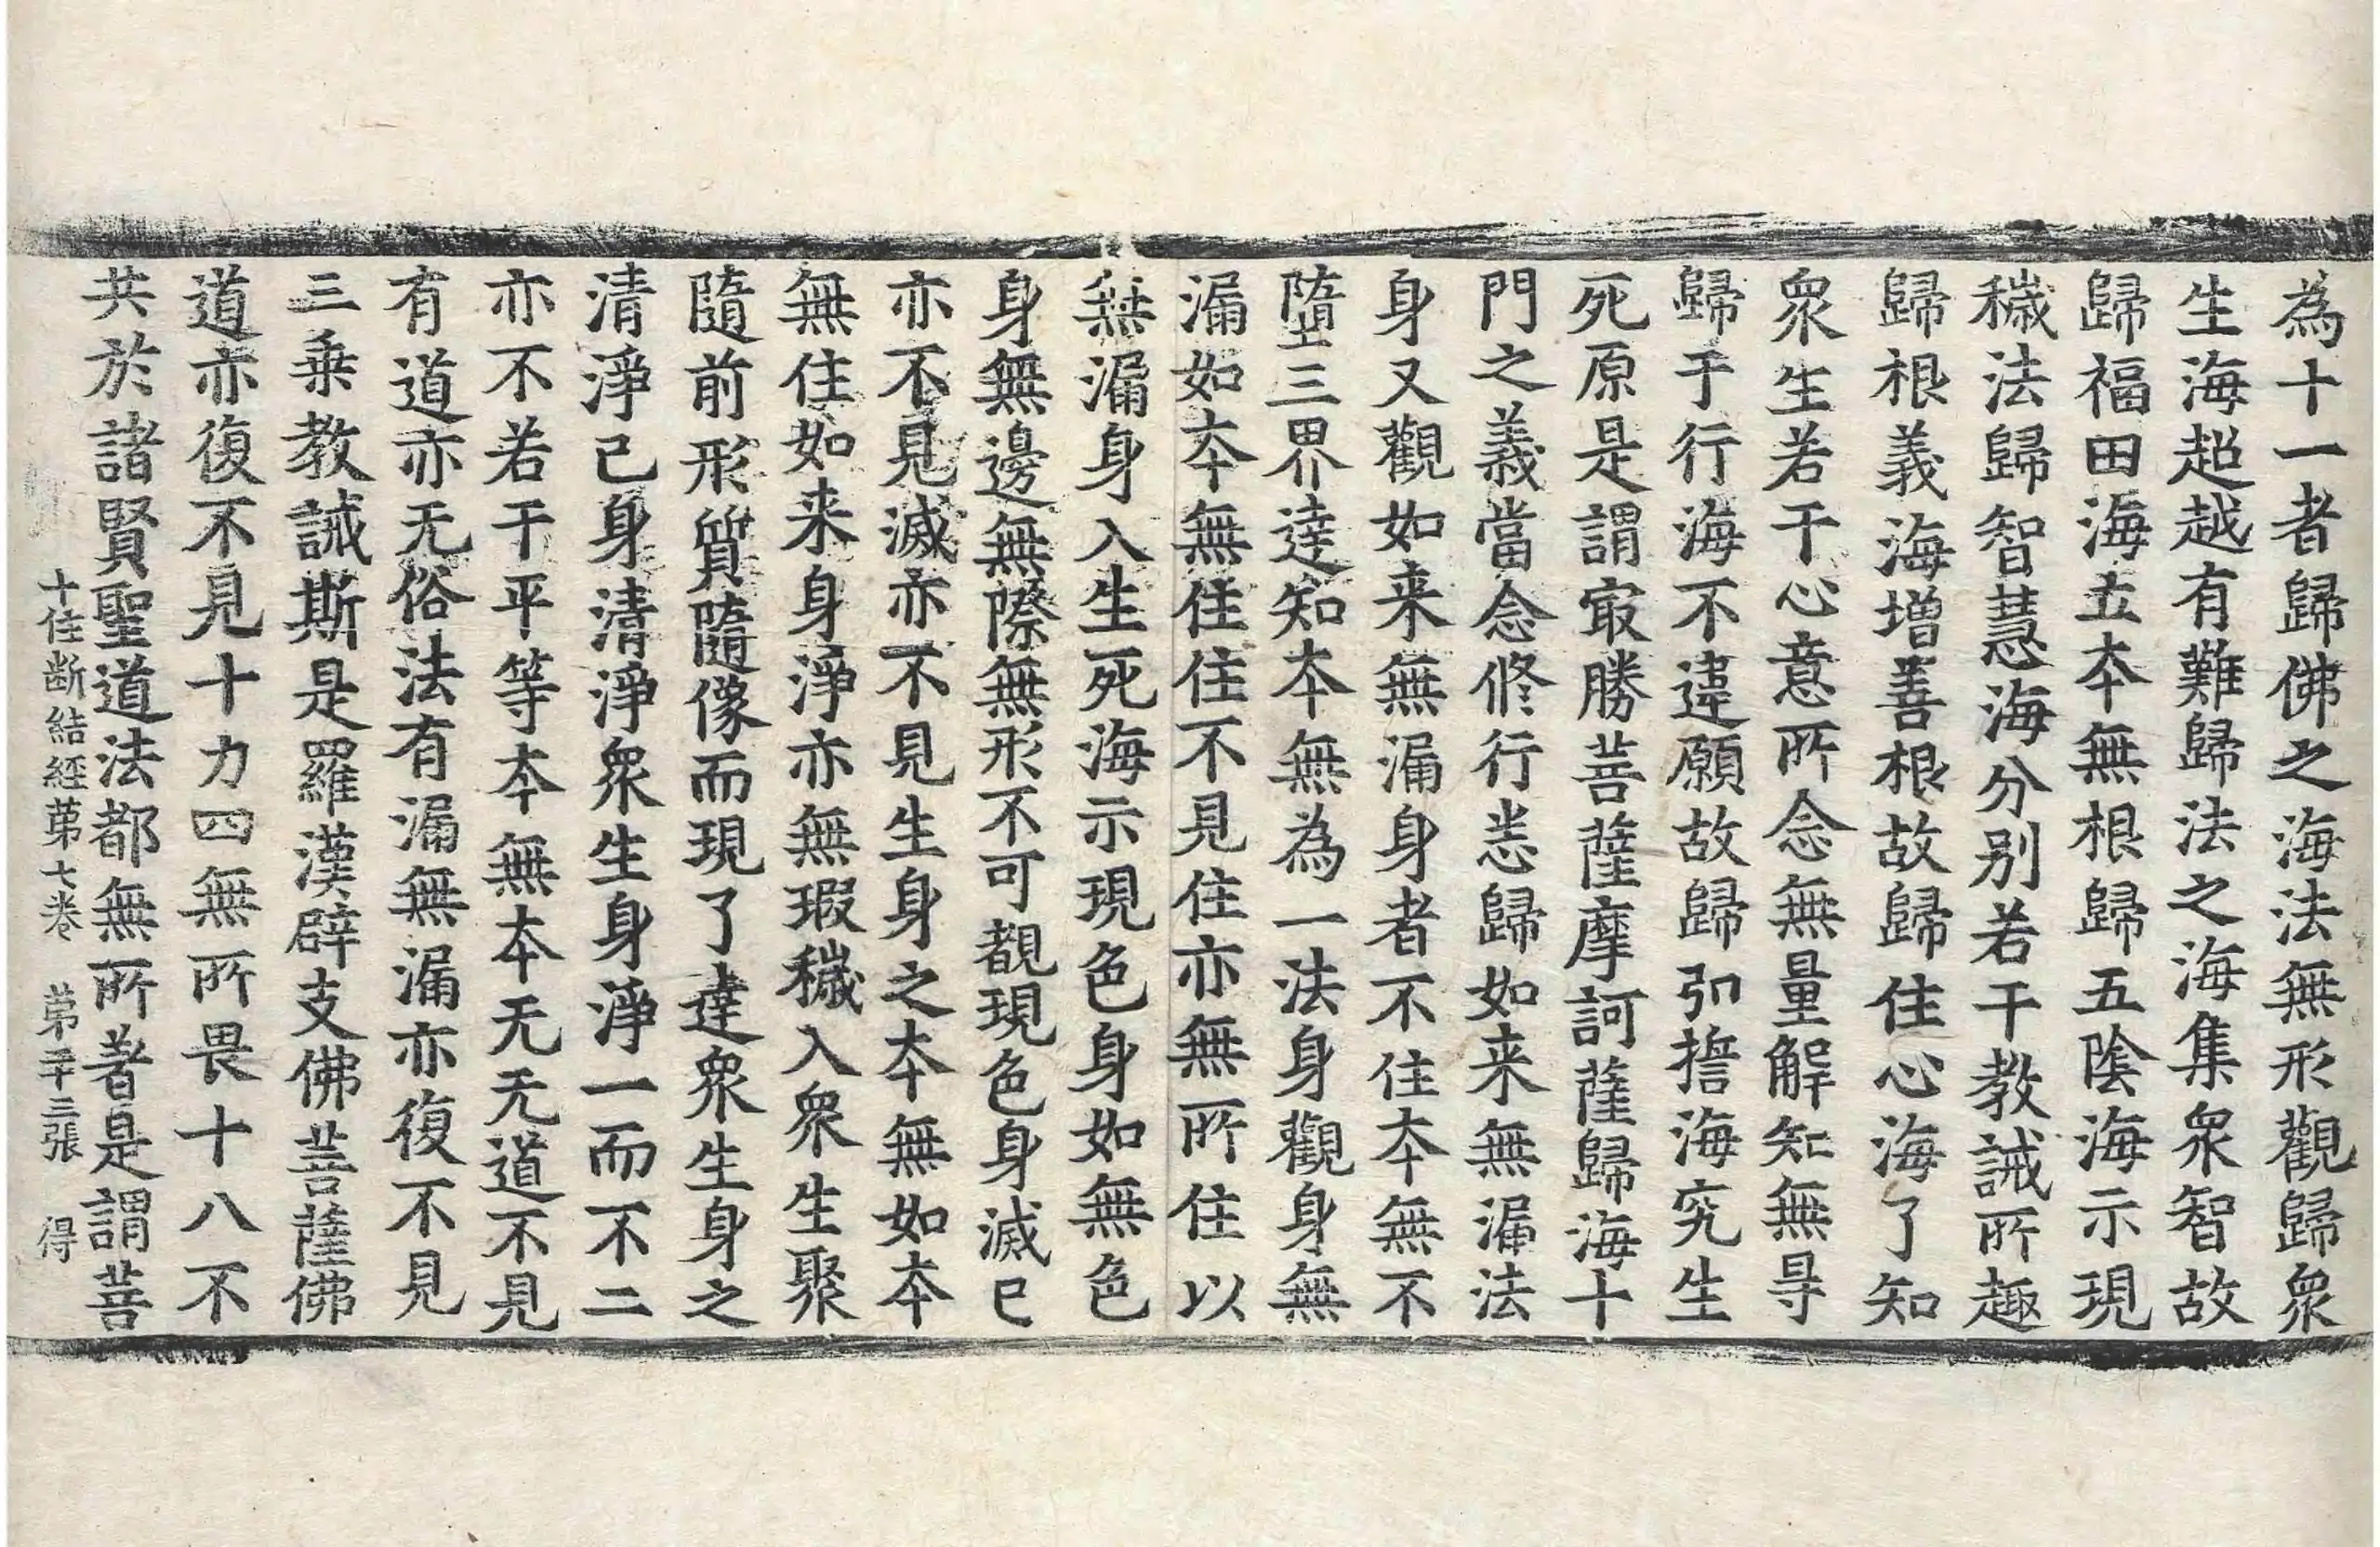 為十一者歸佛之海法無形觀歸衆
生海超越有難歸法之海集衆智故
歸福田海立本無根歸五陰海示現
穢法歸智慧海分别若干教誡所趣
歸根義海增善根故歸住心海了知
衆生若干心意所念無量解知無㝵
歸于行海不違願故歸弘擔海究生
死原是謂㝡勝菩薩摩訶薩歸海十
門之義當念修行恙歸如来無漏法
身又觀如来無漏身者不住本無不
墮三界逹知本無為一法身觀身無
漏如本無住住不見住亦無所住以
無漏身入生死海示現色身如無色
身無邊無際無形不可覩現色身滅已
亦不見滅亦不見生身之本無如本
無住如来身淨亦無瑕穢入衆生聚
隨前形質隨像而現了達衆生身之
清淨己身清淨衆生身淨一而不二
亦不若干平等本無本无无道不見
有道亦无俗法有漏無漏亦復不見
三乗教誡斯是羅漢辟支佛菩薩佛
道亦復不見十力四無所畏十八不
共於諸賢聖道法都無所著是謂菩
十住断結經苐七卷　苐二十三張　得